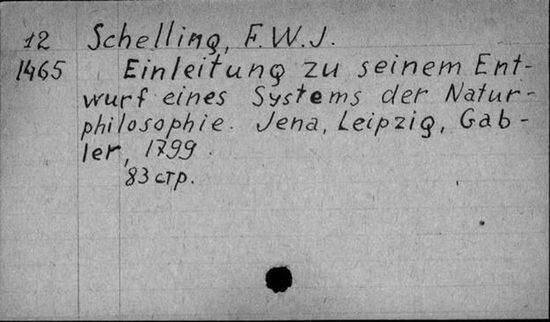 12 Schelling, F.W.J.
1465 Einleitung zu seinem Ent-
wurf eines Systems der Natur-
philosophie. Jena, Leipzig, Gab-
ler, 1799.
83 стр.